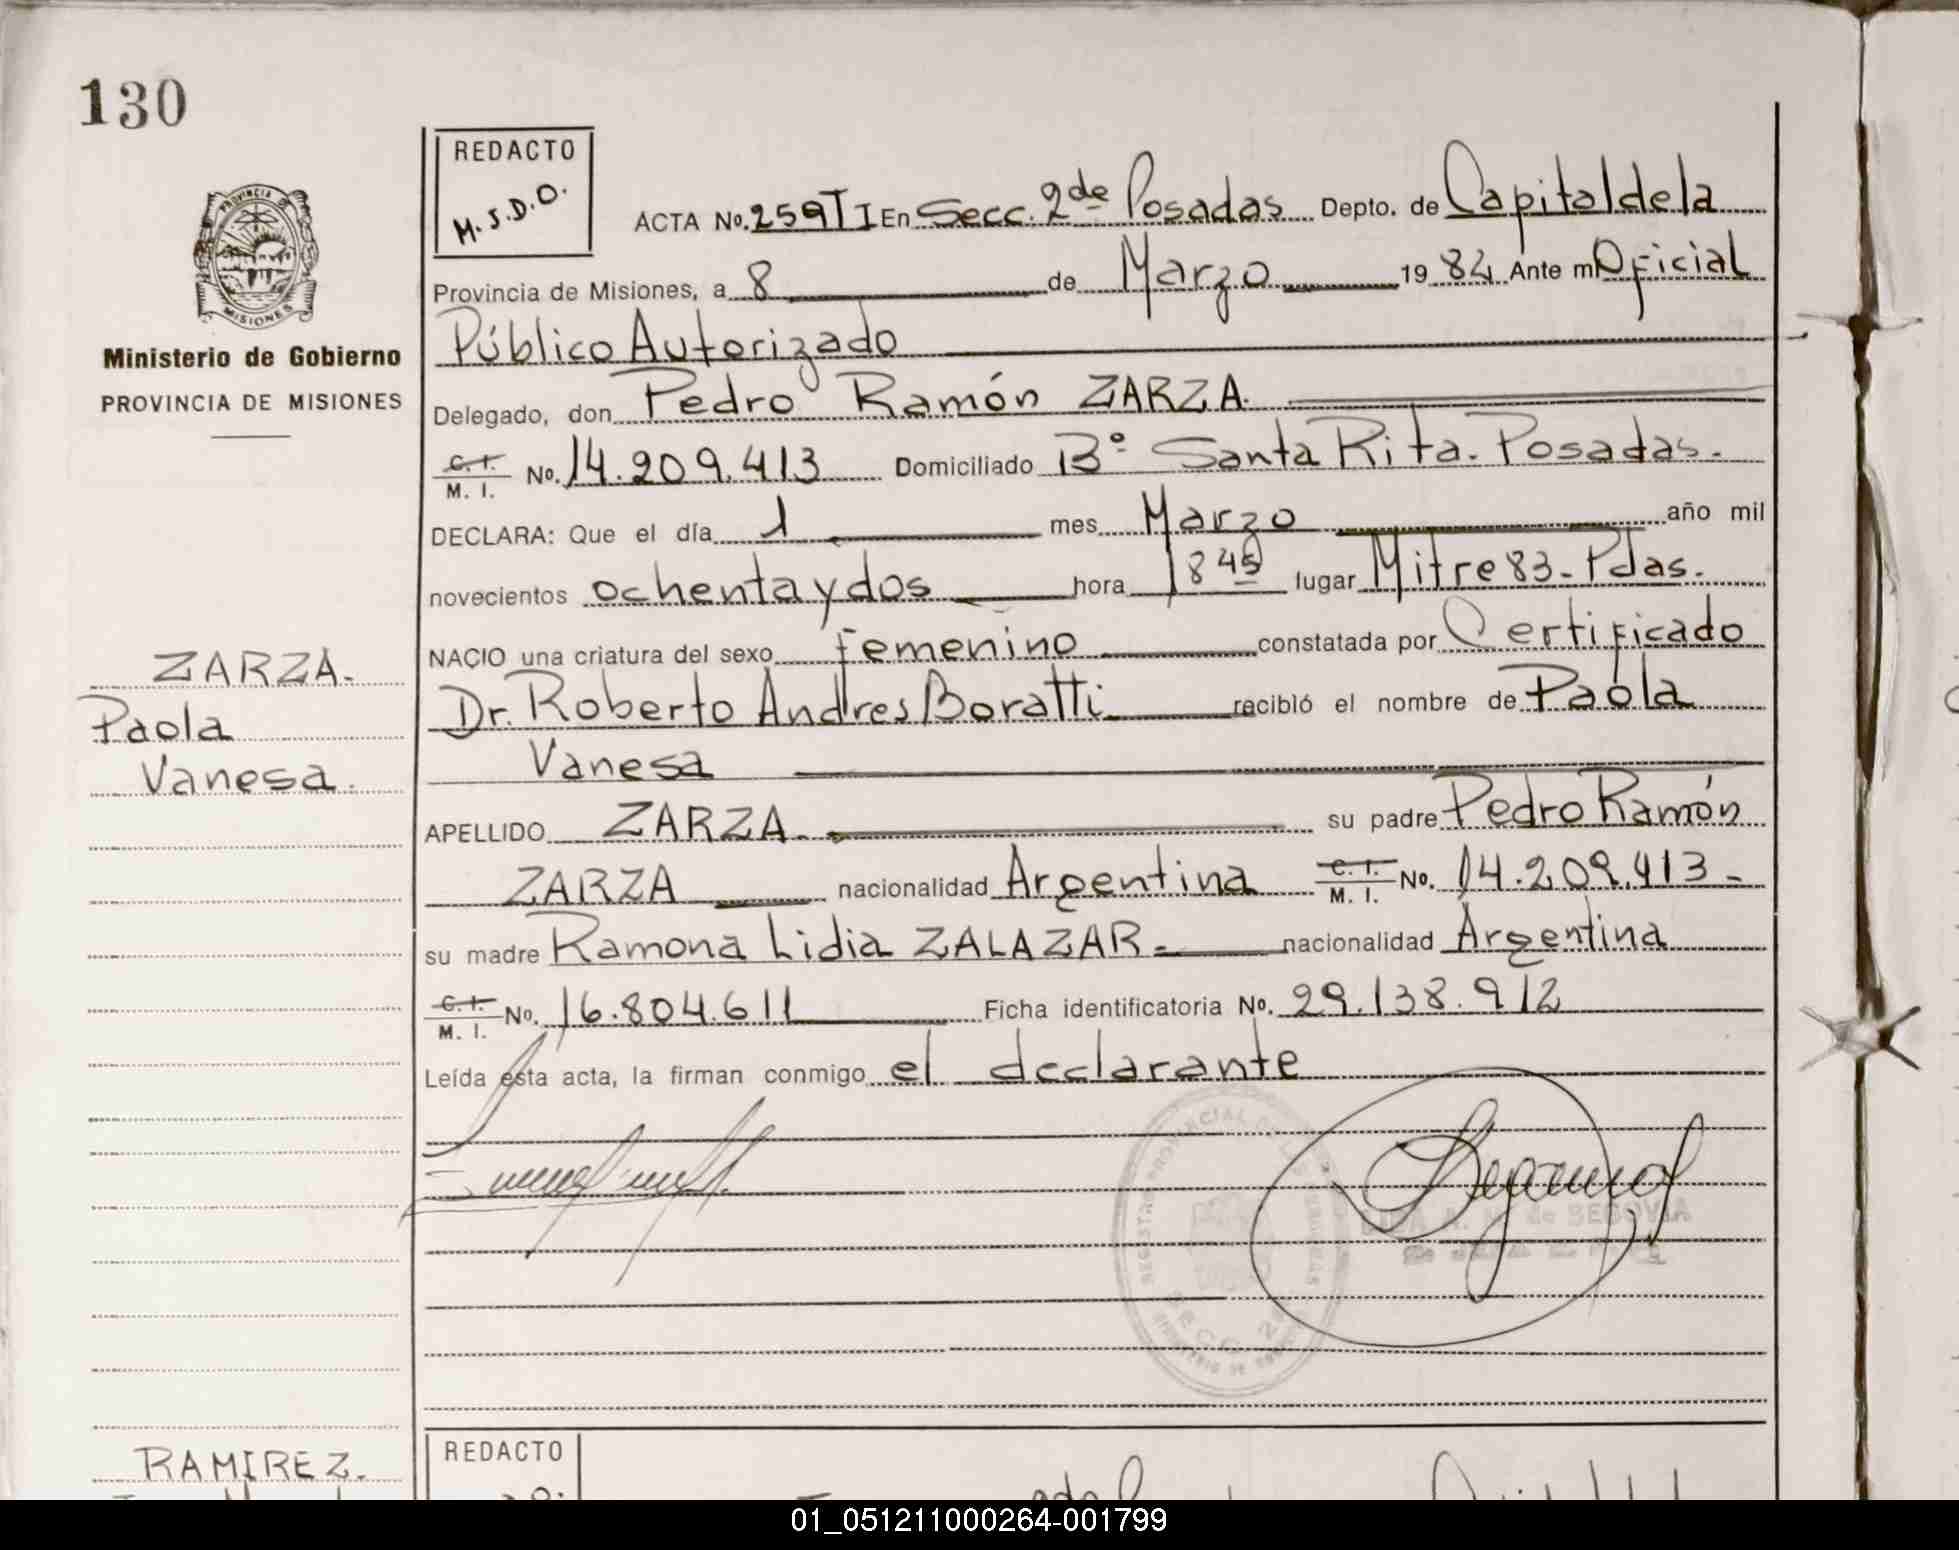 130
REDACTO
M.S.D.O.
PROVINCIA DE
MISIONES
Ministerio de Gobierno
PROVINCIA DE MISIONES
ACTA No. 259 T I En Secc. 2da Posadas Depto. de Capital de la
Provincia de Misiones, a 8 de Marzo 1982 Ante mi Oficial
Público Autorizado
Delegado, don Pedro Ramón ZARZA.
C. I.
M. I. No. 14.209.413 Domiciliado B° Santa Rita. Posadas.
DECLARA: Que el día 1 mes Marzo año mil
novecientos ochenta y dos hora 1845 lugar Mitre 83- Pdas.
NACIO una criatura del sexo femenino constatada por Certificado
Dr. Roberto Andres Boratti recibió el nombre de Paola
Vanesa
ZARZA.
Paola
Vanesa.
APELLIDO ZARZA. su padre Pedro Ramón
ZARZA nacionalidad Argentina C. I.
M. I. No. 14.209.413-
su madre Ramona Lidia ZALAZAR= nacionalidad Argentina
C. I.
M. I. No. 16.804.611 Ficha identificatoria No. 29.138.912
Leída esta acta, la firman conmigo el declarante
REGISTRO PROVINCIAL DE LAS PERSONAS
SECC. 2a
A. M. de SEGOVIA
RAMIREZ.
REDACTO
01_051211000264-001799